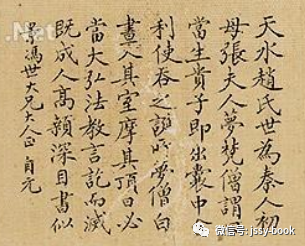 天水趙氏世為秦人初
母張夫人夢梵僧謂
當生貴子即出囊中舍
利使吞之誕所夢僧白
晝入其室摩其頂曰必
當大弘法教言訖而滅
既成人高顙深目書似
馮世大兄大人正
.Net
微信号: jssy-book